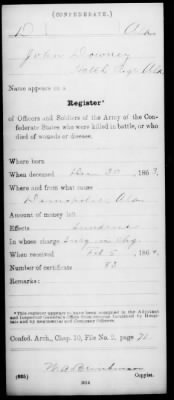 (CONFEDERATE.)
D Ala
John Downey
Name appears on a
Register*
of Officers and Soldiers of the Army of the Confederate States who were killed in battle, or who died of wounds or disease.
Where born
When deceased 30, 1863.
Where and from what cause
Demopolis, Ala
Amount of money left
Effects Sundries
In whose charge Surg in chg
When received Feb 5, 1864.
Number of certificate 83
Remarks:
*This register appears to have been compiled in the Adjutant and Inspector General's Office from returns furnished by Hospitals and by regimental and Company Officers.
Confed. Arch., Chap. 10, File No. 2, page 71
(635) Copyist.